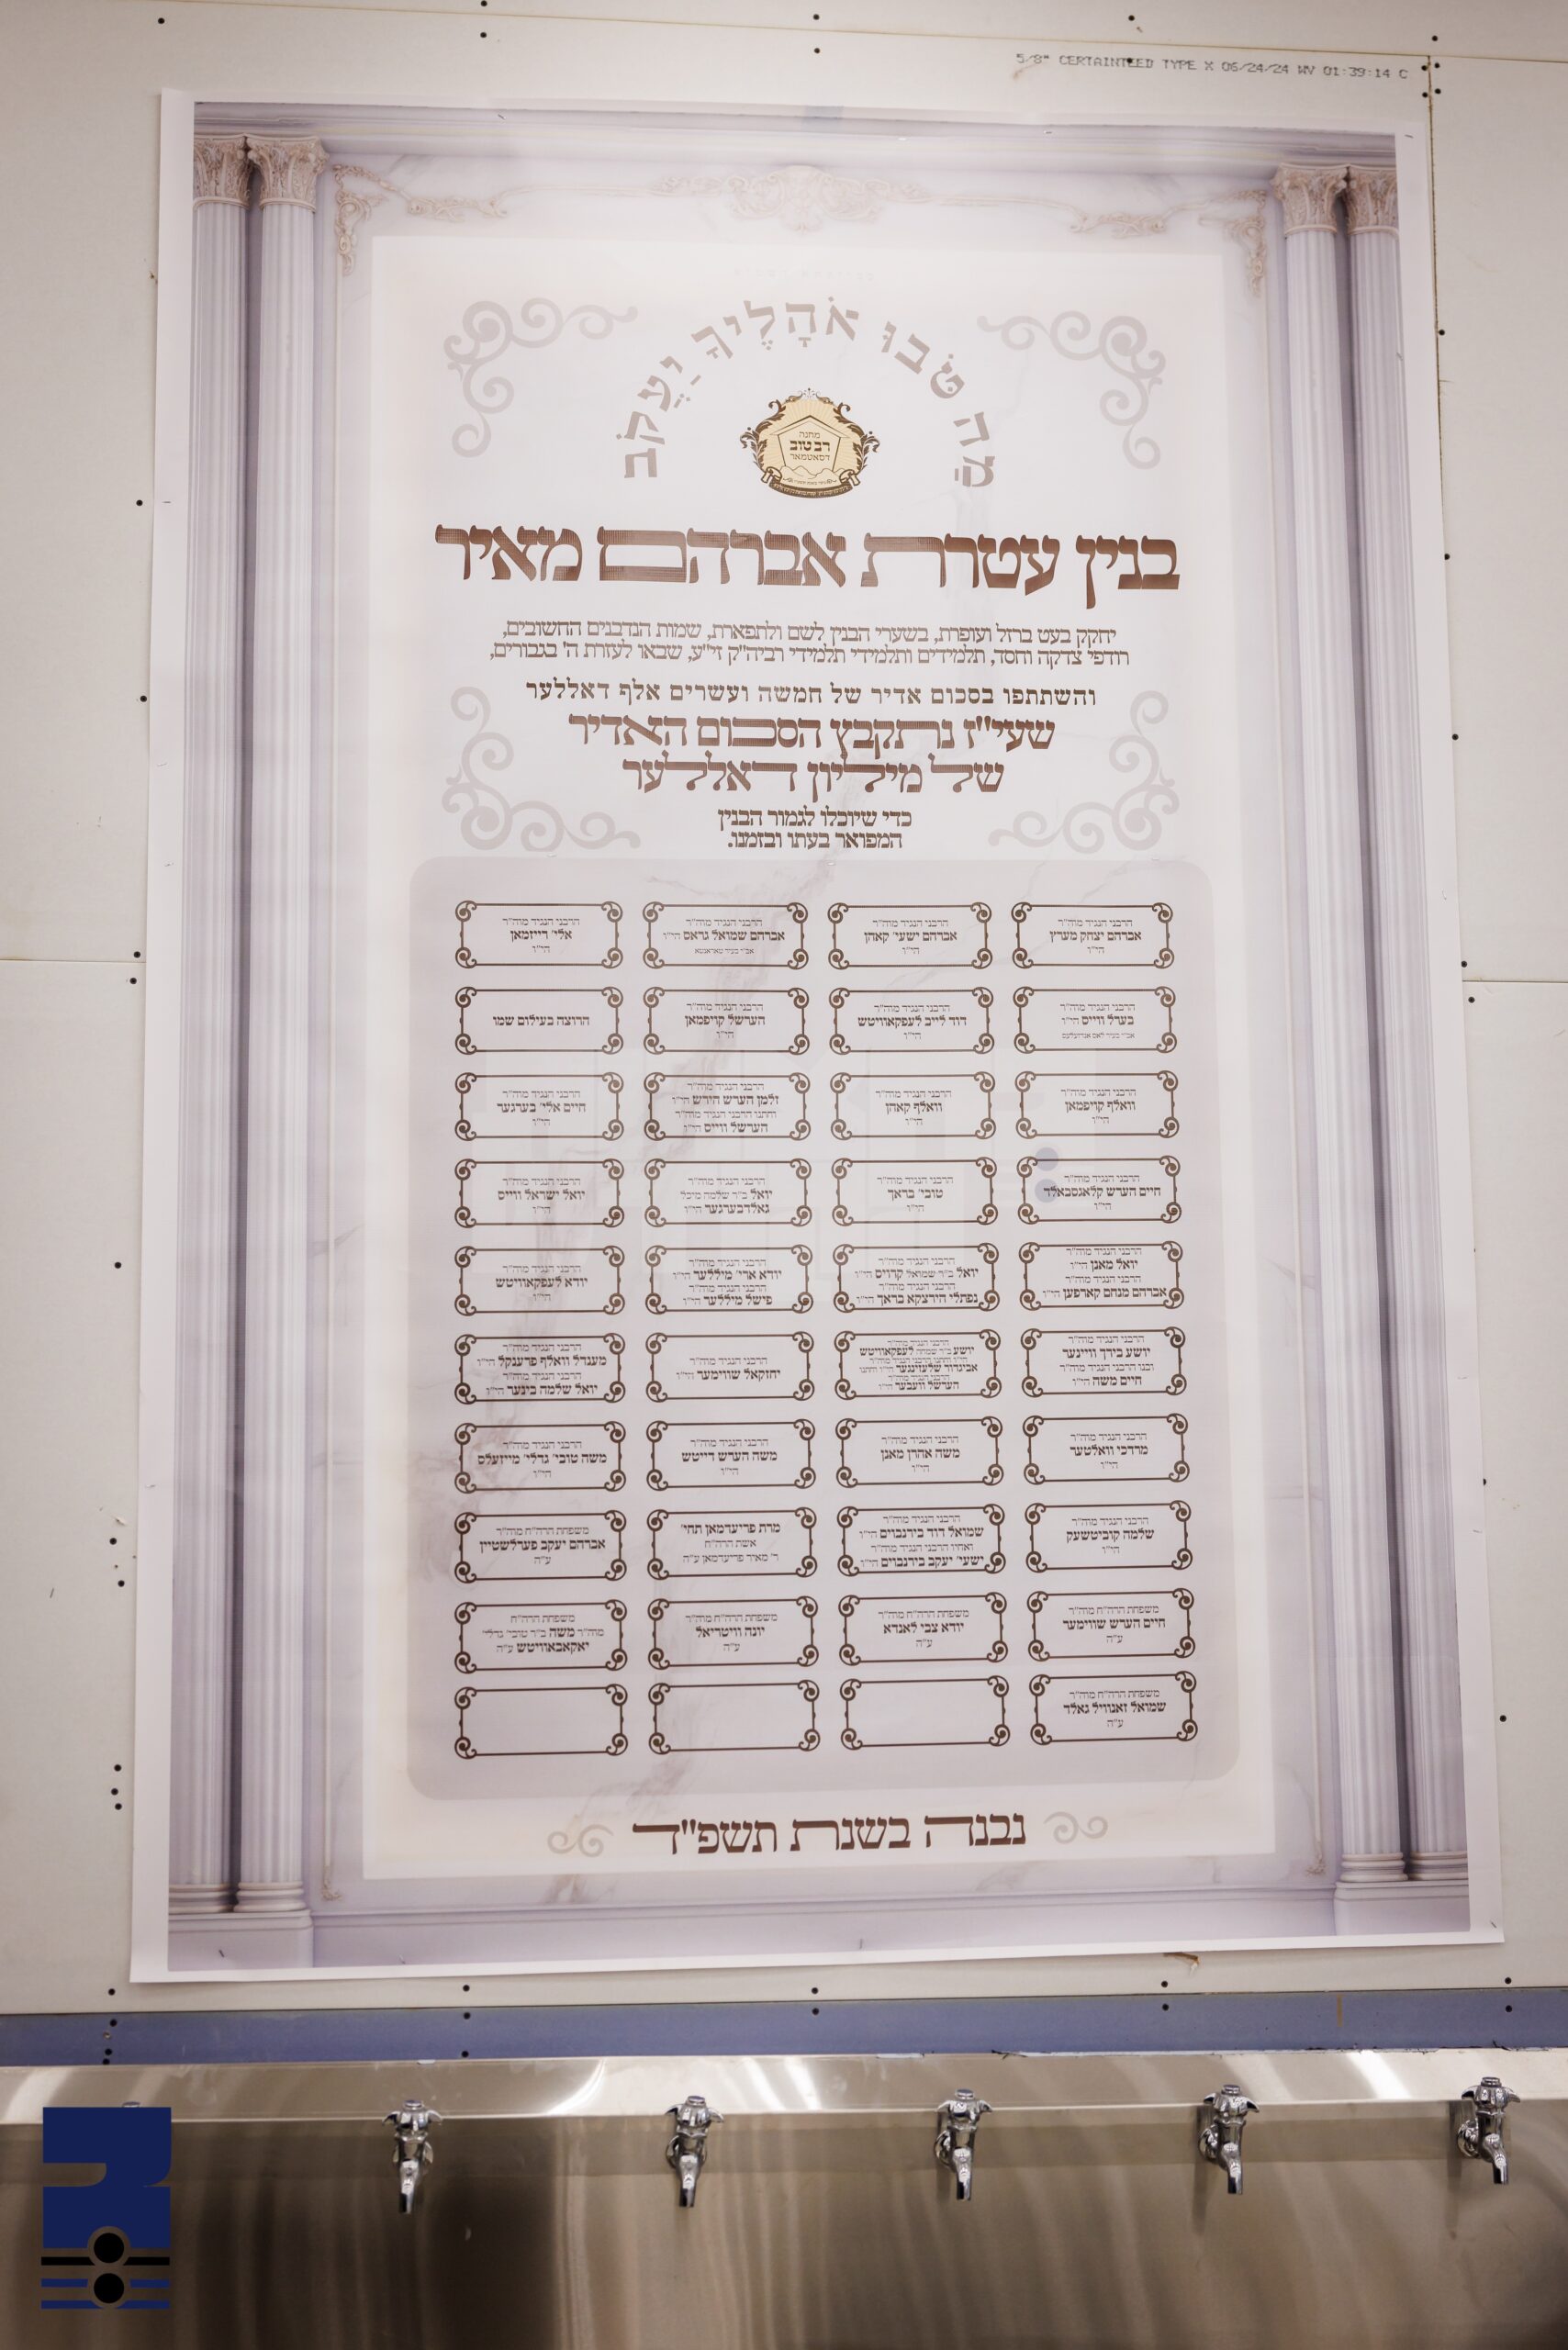 5/8" CERTAINTEED TYPE X 06/24/24 WV 01:39:14 C
מַה טֹּבוּ אֹהָלֶיךָ יַעֲקֹב
מחנה
רב טוב
דסאטמאר
בנין עטרת אברהם מאיר
יחקק בעט ברזל ועופרת, בשערי הבנין לשם ולתפארת, שמות הנדבנים החשובים,
רודפי צדקה וחסד, תלמידים ותלמידי תלמידי רביה"ק זי"ע, שבאו לעזרת ה' בגבורים,
והשתתפו בסכום אדיר של חמשה ועשרים אלף דאללער
שעי"ז נתקבץ הסכום האדיר
של מיליון דאללער
כדי שיוכלו לגמור הבנין
המפואר בעתו ובזמנו.
הרבני הנגיד מוה"ר
אברהם יצחק מערץ
הי"ו
הרבני הנגיד מוה"ר
אברהם ישעי' קאהן
הי"ו
הרבני הנגיד מוה"ר
אברהם שמואל גראס הי"ו
אב"י בעיר טאראנטא
הרבני הנגיד מוה"ר
אלי' רייזמאן
הי"ו
הרבני הנגיד מוה"ר
בערל ווייס הי"ו
אב"י בעיר לאס אנדזעלעס
הרבני הנגיד מוה"ר
דוד לייב לעפקאוויטש
הי"ו
הרבני הנגיד מוה"ר
הערשל קויפמאן
הי"ו
הרוצה בעילום שמו
הרבני הנגיד מוה"ר
וואלף קויפמאן
הי"ו
הרבני הנגיד מוה"ר
וואלף קאהן
הי"ו
הרבני הנגיד מוה"ר
זלמן הערש הירש הי"ו
וחתנו הרבני הנגיד מוה"ר
הערשל ווייס הי"ו
הרבני הנגיד מוה"ר
חיים אלי' בערגער
הי"ו
הרבני הנגיד מוה"ר
חיים הערש קלאגסבאלד
הי"ו
הרבני הנגיד מוה"ר
טובי' בראך
הי"ו
הרבני הנגיד מוה"ר
יואל ב"ר שלמה מיכל
גאלדבערגער הי"ו
הרבני הנגיד מוה"ר
יואל ישראל ווייס
הי"ו
הרבני הנגיד מוה"ר
יואל מאנן הי"ו
הרבני הנגיד מוה"ר
אברהם מנחם קארפען הי"ו
הרבני הנגיד מוה"ר
יואל ב"ר שמואל קרויס הי"ו
הרבני הנגיד מוה"ר
נפתלי הירצקא בראך הי"ו
הרבני הנגיד מוה"ר
יודא ארי' מיללער הי"ו
הרבני הנגיד מוה"ר
פישל מיללער הי"ו
הרבני הנגיד מוה"ר
יודא לעפקאוויטש
הי"ו
הרבני הנגיד מוה"ר
יושע בירך וויינער
ובנו הרבני הנגיד מוה"ר
חיים משה הי"ו
הרבני הנגיד מוה"ר
יושע ב"ר שמחה לעפקאוויטש
הי"ו וחתנו הרבני הנגיד מוה"ר
אביגדור שלעזינגער הי"ו וחתנו
הרבני הנגיד מוה"ר
הערשל וועבער הי"ו
הרבני הנגיד מוה"ר
יחזקאל שווימער הי"ו
הרבני הנגיד מוה"ר
מענדל וואלף פרענקל הי"ו
הרבני הנגיד מוה"ר
יואל שלמה בינער הי"ו
הרבני הנגיד מוה"ר
מרדכי וואלטער
הי"ו
הרבני הנגיד מוה"ר
משה אהרן מאנן
הי"ו
הרבני הנגיד מוה"ר
משה הערש דייטש
הי"ו
הרבני הנגיד מוה"ר
משה טובי' גדלי' מייזעלס
הי"ו
הרבני הנגיד מוה"ר
שלמה קוביטשעק
הי"ו
הרבני הנגיד מוה"ר
שמואל דוד בירנבוים הי"ו
ואחיו הרבני הנגיד מוה"ר
ישעי' יעקב בירנבוים הי"ו
מרת פריעדמאן תחי'
אשת הרה"ח
ר' מאיר פריעדמאן ע"ה
משפחת הרה"ח מוה"ר
אברהם יעקב פערלשטיין
ע"ה
משפחת הרה"ח מוה"ר
חיים הערש שווימער
ע"ה
משפחת הרה"ח מוה"ר
יודא צבי לאנדא
ע"ה
משפחת הרה"ח מוה"ר
יונה וויטריאל
ע"ה
משפחת הרה"ח
מוה"ר משה ב"ר טובי' גדלי'
יאקאבאוויטש ע"ה
משפחת הרה"ח מוה"ר
שמואל זאנוויל גאלד
ע"ה
נבנה בשנת תשפ"ד